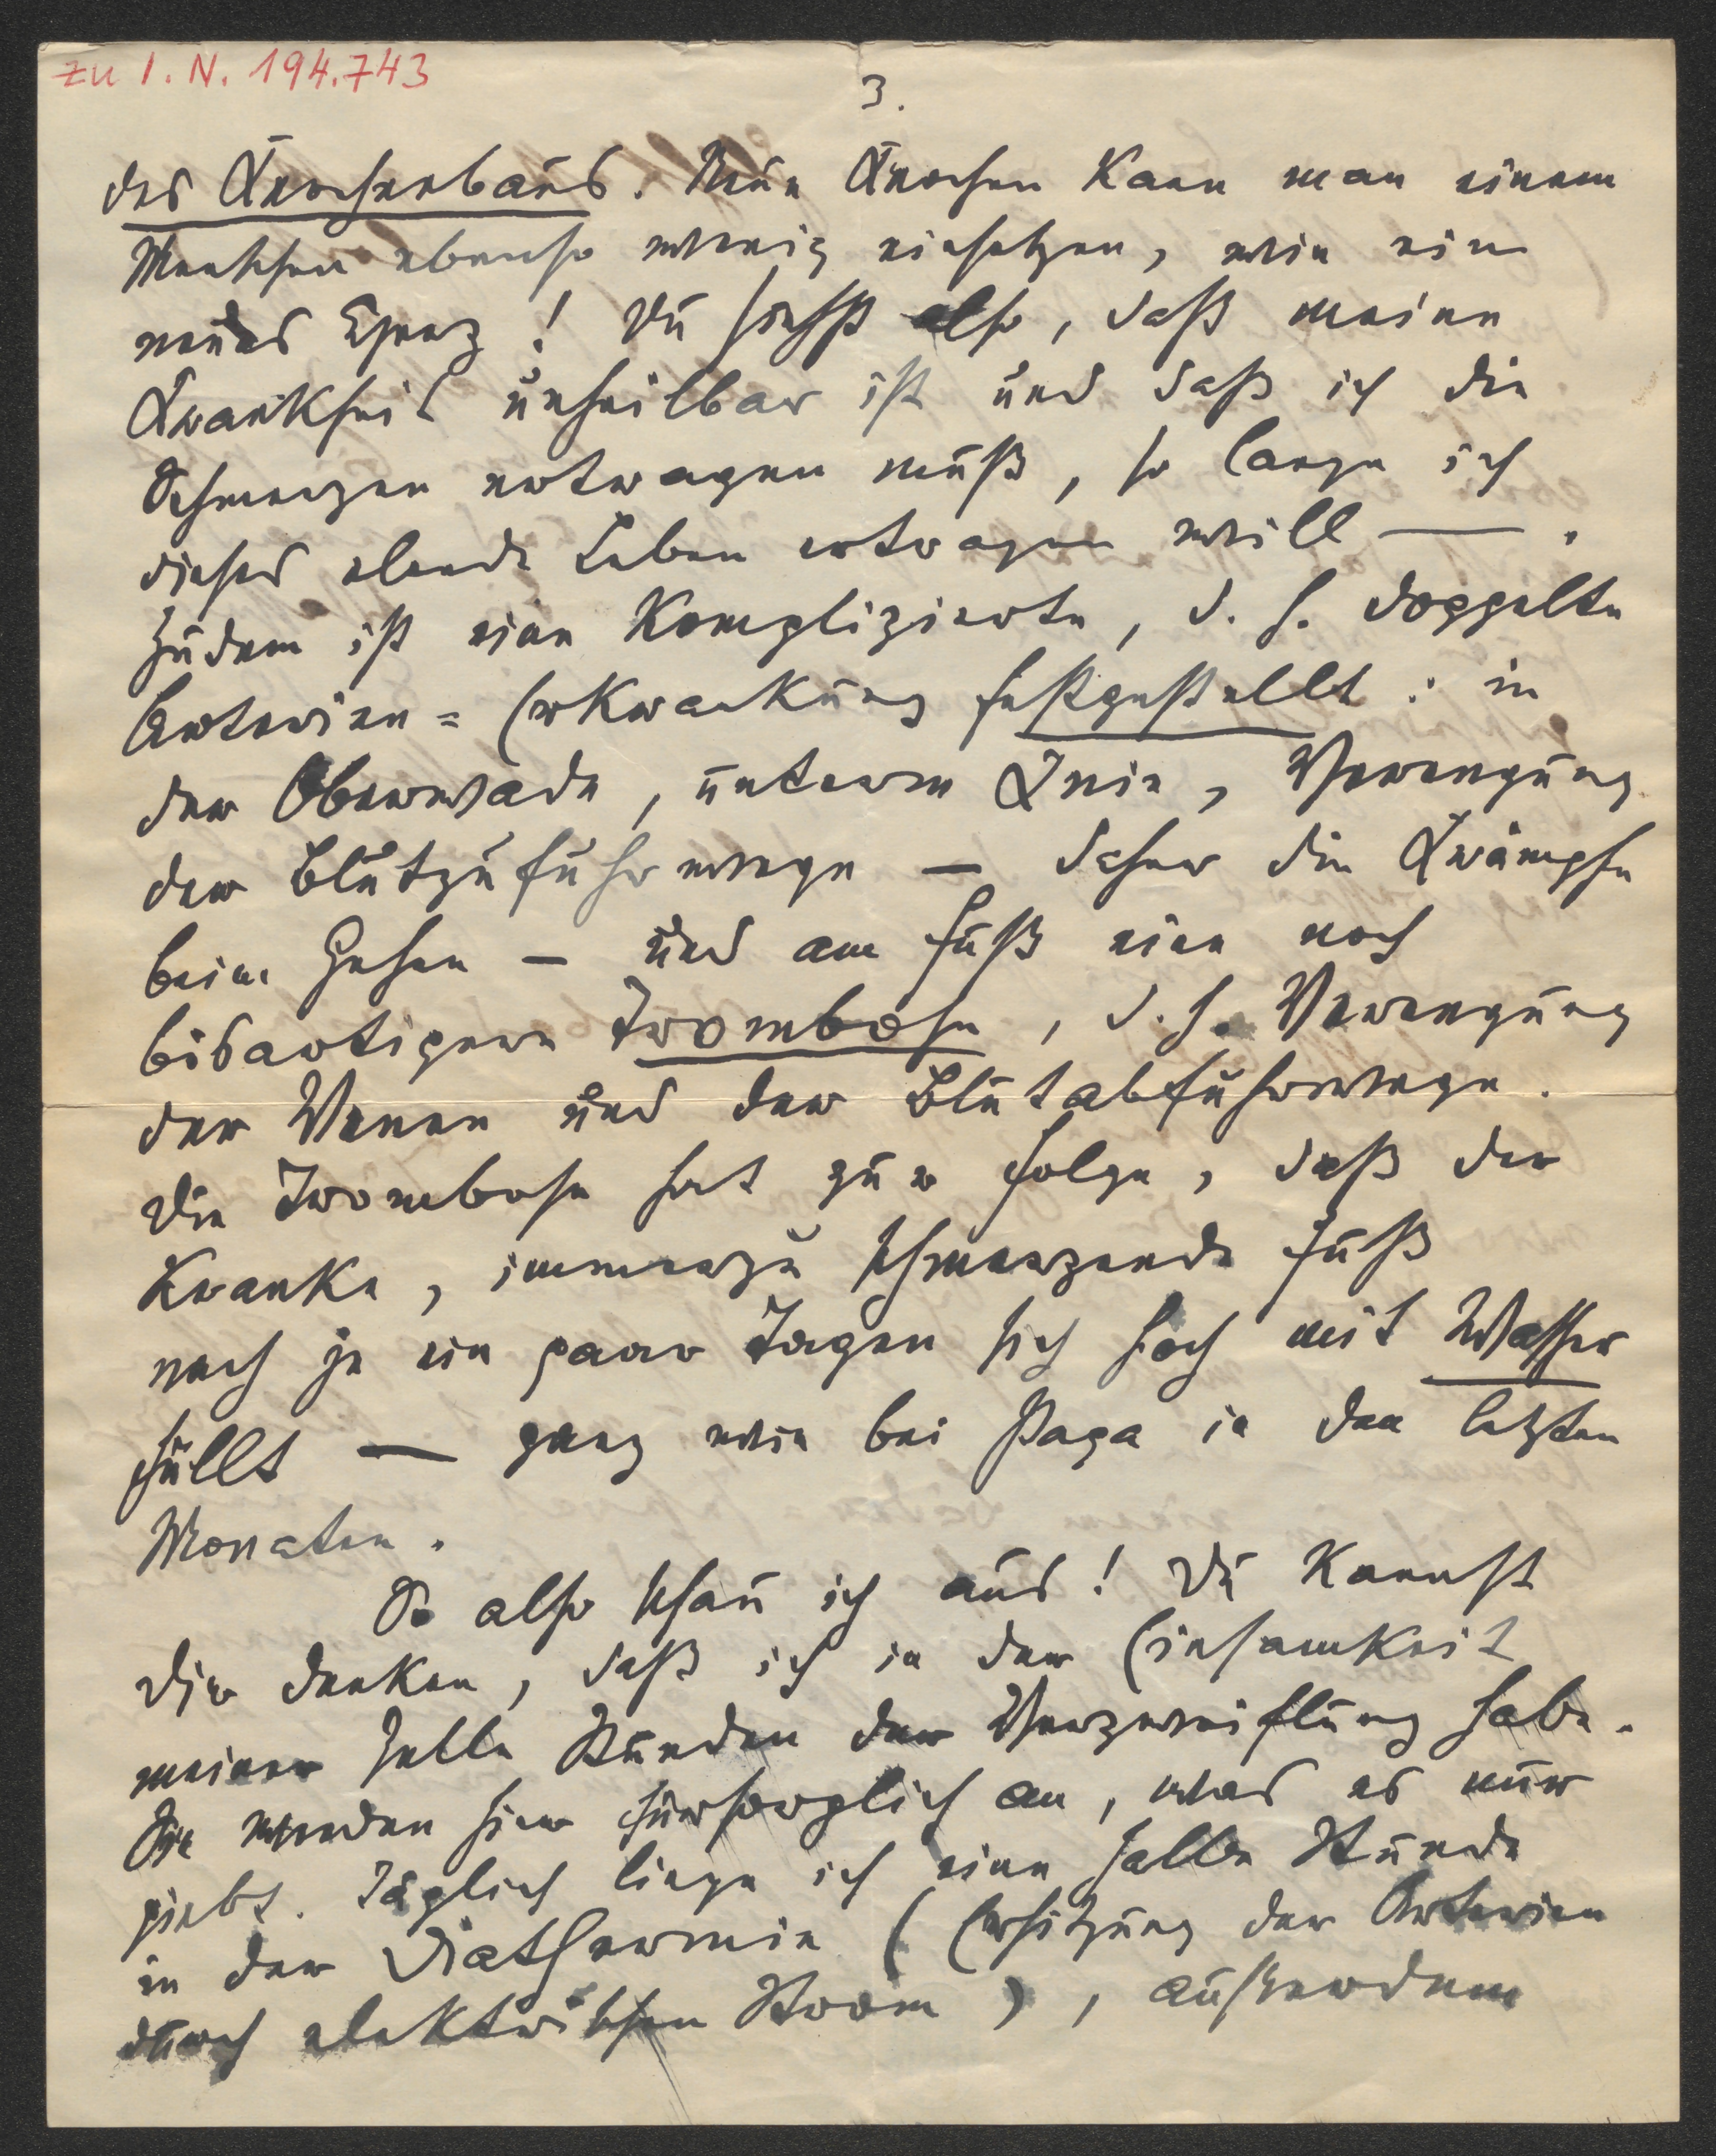 zu I. N. 194.743
3.
des Knochenbaus. Neue Knochen kann man einem
Menschen ebenso wenig einsetzen, wie ein
neues Herz! Du siehst also, daß meine
Krankheit unheilbar ist und daß ich die
Schmerzen ertragen muß, so lange ich
dieses elende Leben ertragen will — .
Zudem ist eine komplizierte, d. h. doppelte
Arterien=Erkrankung festgestellt: in
der Oberwade, unterm Knie, Verengung
der Blutzufuhrwege — daher die Krämpfe
beim Gehen — und am Fuß eine noch
bösartigere Trombose, d. h. Verengung
der Venen und der Blutabfuhrwege.
Die Trombose hat zur Folge, daß der
kranke, immerzu schmerzende Fuß
nach je ein paar Tagen sich hoch mit Wasser
füllt — ganz wie bei Papa in den letzten
Monaten.
So also schau ich aus! Du kannst
Dir denken, daß ich in der Einsamkeit
meiner Zelle Stunden der Verzweiflung habe.
Sie wenden hier fürsorglich an, was es nur
giebt. Täglich liege ich eine halbe Stunde
in der Diathermie (Erhitzung der Arterien
durch elektrischen Strom), außerdem